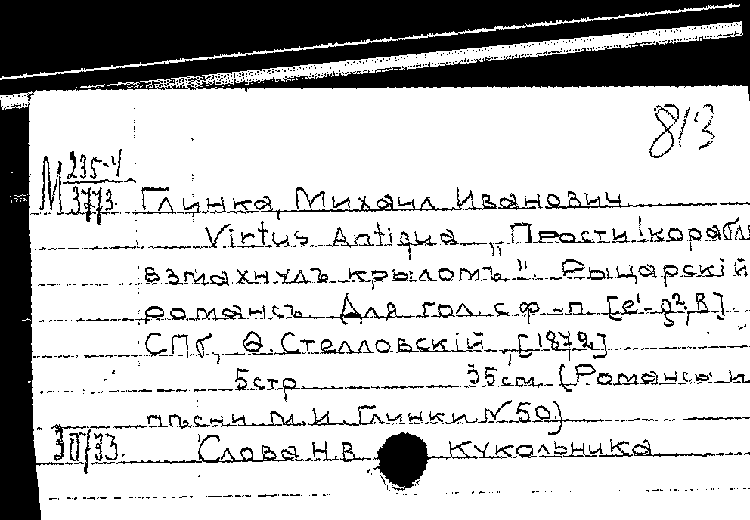 813
М 235-4
3773. Глинка, Михаил Иванович
Virtus Antiqua „Прости! корабль
взмахнулъ крыломъ". Рыцарскій
романсъ. Для гол. с ф-п. [e¹-g²,
СПб, Ѳ. Стелловскій, [1872]
5 стр. 35 см. (Романсы и
пѣсни М. И. Глинки № 50)
Слова Н В Кукольника